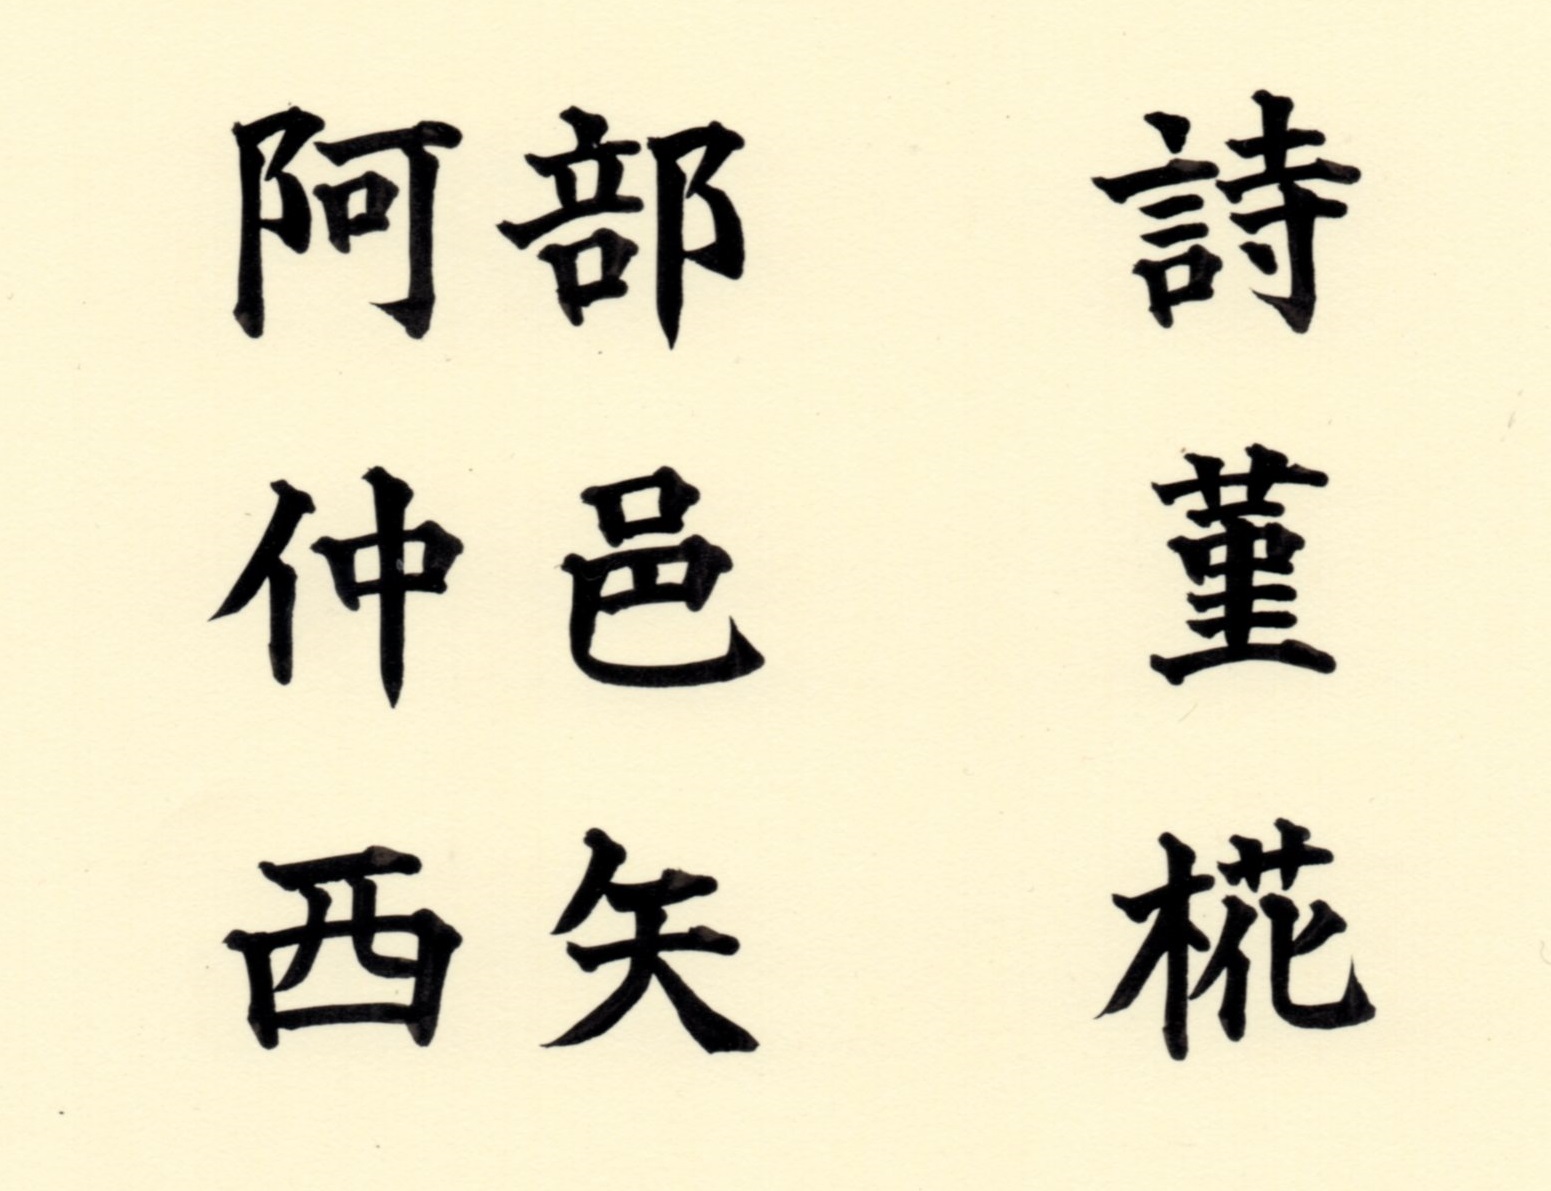 阿部 詩
仲邑 菫
西矢 椛